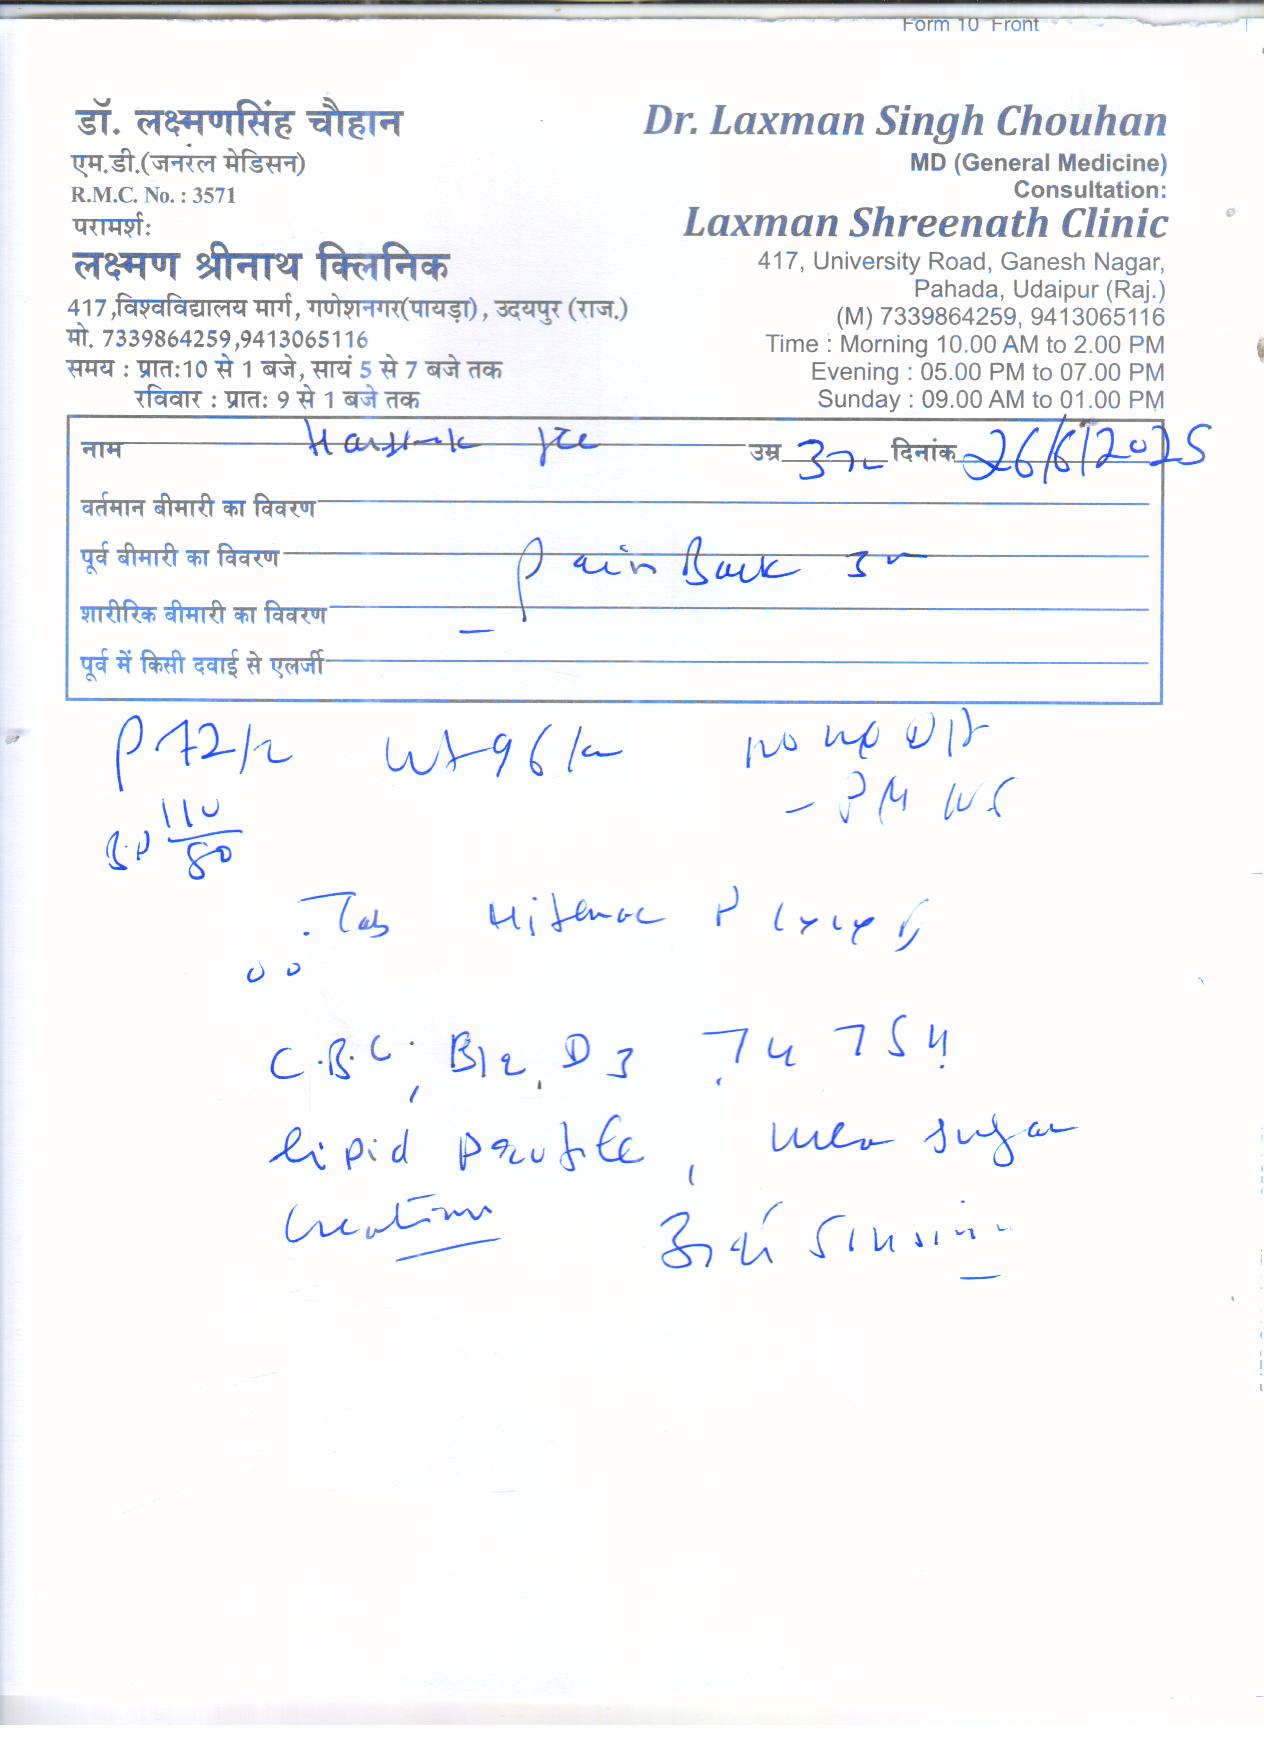 Form 10 Front
डॉ. लक्ष्मणसिंह चौहान
एम.डी.(जनरल मेडिसन)
R.M.C. No. : 3571
परामर्शः
लक्ष्मण श्रीनाथ क्लिनिक
417,विश्वविद्यालय मार्ग, गणेशनगर(पायड़ा), उदयपुर (राज.)
मो. 7339864259,9413065116
समय : प्रातः10 से 1 बजे, सायं 5 से 7 बजे तक
रविवार : प्रातः 9 से 1 बजे तक
Dr. Laxman Singh Chouhan
MD (General Medicine)
Consultation:
Laxman Shreenath Clinic
417, University Road, Ganesh Nagar,
Pahada, Udaipur (Raj.)
(M) 7339864259, 9413065116
Time : Morning 10.00 AM to 2.00 PM
Evening : 05.00 PM to 07.00 PM
Sunday : 09.00 AM to 01.00 PM
नाम उम्र दिनांक 26/6/2025
वर्तमान बीमारी का विवरण
पूर्व बीमारी का विवरण Pain Back
शारीरिक बीमारी का विवरण
पूर्व में किसी दवाई से एलर्जी
P 72/ Wt 96 no
B.P 110/80
Tab P
C.B.C, B12, D3
lipid profile, sugar
creatinine